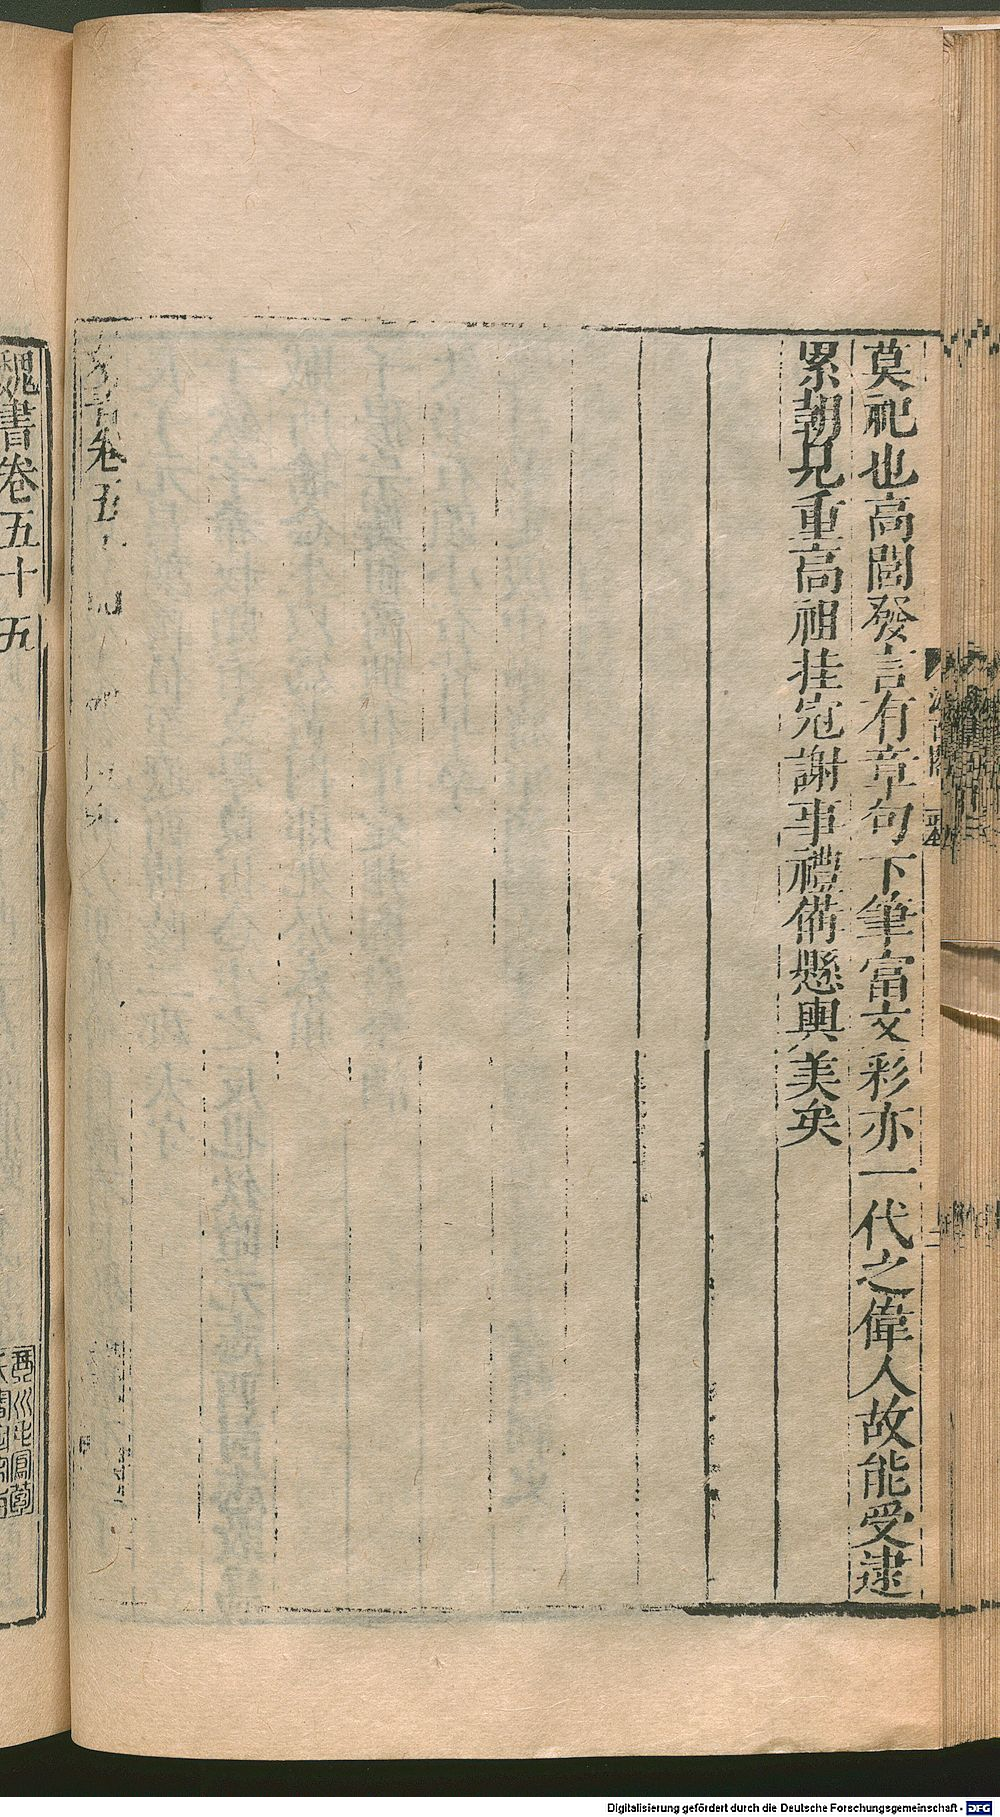 莫祀也高閭發言有章句下筆富文彩亦一代之偉人故能受逮
累朝見重高祖挂冠謝事禮備懸輿美矣
卷五
魏書卷五十五
Digitalisierung gefördert durch die Deutsche Forschungsgemeinschaft - DFG